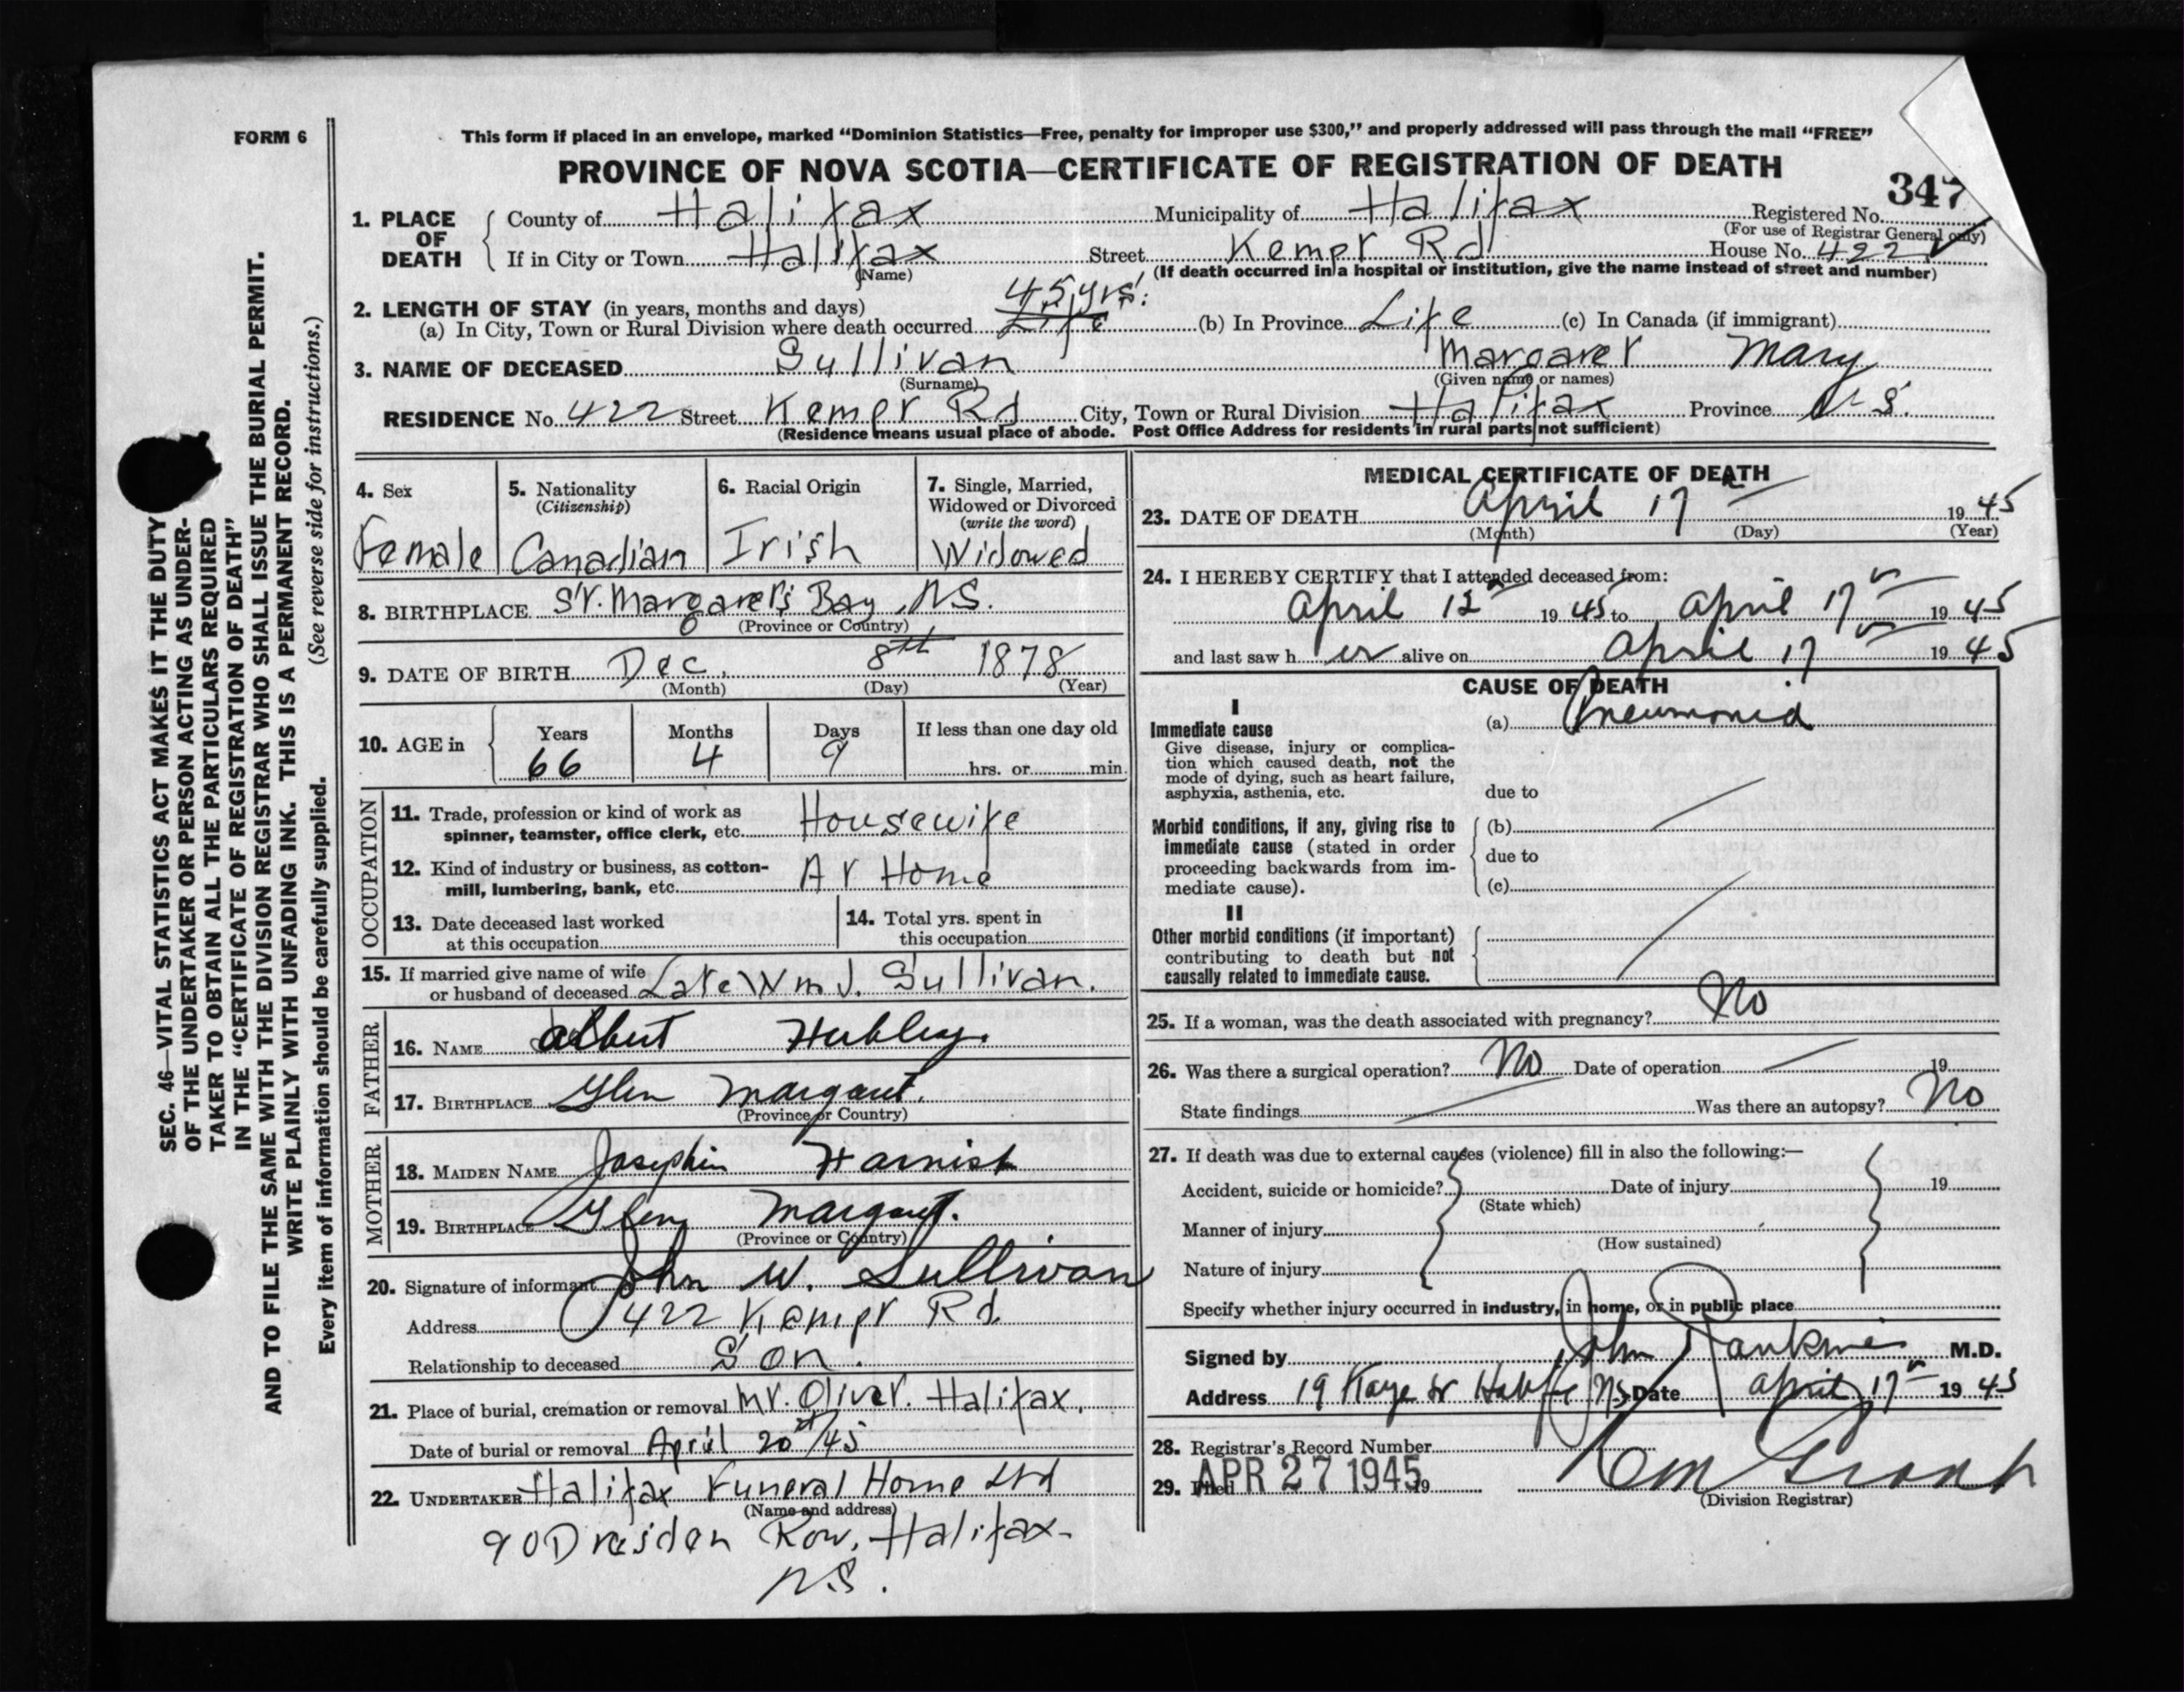 FORM 6
This form if placed in an envelope, marked “Dominion Statistics—Free, penalty for improper use $300,” and properly addressed will pass through the mail “FREE”
PROVINCE OF NOVA SCOTIA—CERTIFICATE OF REGISTRATION OF DEATH
347
1. PLACE OF DEATH
County of Halifax Municipality of Halifax Registered No.
(For use of Registrar General only)
If in City or Town Halifax Street Kempt Rd House No. 422
(Name) (If death occurred in a hospital or institution, give the name instead of street and number)
2. LENGTH OF STAY (in years, months and days) 45 yrs.
(a) In City, Town or Rural Division where death occurred Life (b) In Province Life (c) In Canada (if immigrant)
3. NAME OF DECEASED Sullivan Margaret Mary
(Surname) (Given name or names)
RESIDENCE No. 422 Street Kempt Rd City, Town or Rural Division Halifax Province N.S.
(Residence means usual place of abode. Post Office Address for residents in rural parts not sufficient)
4. Sex
Female
5. Nationality
(Citizenship)
Canadian
6. Racial Origin
Irish
7. Single, Married,
Widowed or Divorced
(write the word)
Widowed
8. BIRTHPLACE St. Margaret's Bay, N.S.
(Province or Country)
9. DATE OF BIRTH Dec. 8th 1878
(Month) (Day) (Year)
10. AGE in
Years Months Days If less than one day old
66 4 9 hrs. or min.
OCCUPATION
11. Trade, profession or kind of work as
spinner, teamster, office clerk, etc. Housewife
12. Kind of industry or business, as cotton-
mill, lumbering, bank, etc. At Home
13. Date deceased last worked
at this occupation
14. Total yrs. spent in
this occupation
15. If married give name of wife
or husband of deceased Late Wm J. Sullivan.
FATHER
16. NAME Albert Hubley.
17. BIRTHPLACE Glen Margaret.
(Province or Country)
MOTHER
18. MAIDEN NAME Josephin Harnish
19. BIRTHPLACE Glen Margaret.
(Province or Country)
20. Signature of informant John W. Sullivan
Address 422 Kempt Rd.
Relationship to deceased Son.
21. Place of burial, cremation or removal Mt. Olivet. Halifax.
Date of burial or removal April 20th/45
22. UNDERTAKER Halifax Funeral Home Ltd
(Name and address)
90 Dresden Row, Halifax-
N.S.
MEDICAL CERTIFICATE OF DEATH
23. DATE OF DEATH April 17th 1945
(Month) (Day) (Year)
24. I HEREBY CERTIFY that I attended deceased from:
April 12th 1945 to April 17th 1945
and last saw her alive on April 17th 1945
CAUSE OF DEATH
I
Immediate cause
Give disease, injury or complica-
tion which caused death, not the
mode of dying, such as heart failure,
asphyxia, asthenia, etc.
(a) Pneumonia
due to
Morbid conditions, if any, giving rise to
immediate cause (stated in order
proceeding backwards from im-
mediate cause).
(b)
due to
(c)
II
Other morbid conditions (if important)
contributing to death but not
causally related to immediate cause.
25. If a woman, was the death associated with pregnancy? No
26. Was there a surgical operation? No Date of operation 19
State findings Was there an autopsy? No
27. If death was due to external causes (violence) fill in also the following:—
Accident, suicide or homicide? Date of injury 19
(State which)
Manner of injury
(How sustained)
Nature of injury
Specify whether injury occurred in industry, in home, or in public place
Signed by John Rankine M.D.
Address 19 Kaye St Halifax N.S. Date April 17th 1945
28. Registrar's Record Number
29. Filed APR 27 1945 19
(Division Registrar)
SEC. 46—VITAL STATISTICS ACT MAKES IT THE DUTY
OF THE UNDERTAKER OR PERSON ACTING AS UNDER-
TAKER TO OBTAIN ALL THE PARTICULARS REQUIRED
IN THE “CERTIFICATE OF REGISTRATION OF DEATH”
AND TO FILE THE SAME WITH THE DIVISION REGISTRAR WHO SHALL ISSUE THE BURIAL PERMIT.
WRITE PLAINLY WITH UNFADING INK. THIS IS A PERMANENT RECORD.
Every item of information should be carefully supplied. (See reverse side for instructions.)